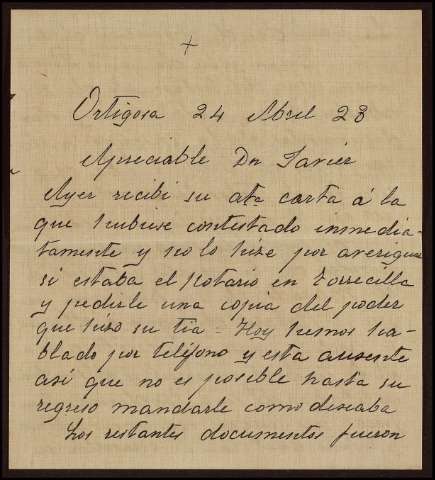 +
Ortigosa 24 Abril 28
Apreciable Dn Javier
Ayer recibi su ata carta á la
que hubiese contestado inmedia-
tamente y no lo hize por averiguar
si estaba el Notario en Torrecilla
y pedirle una copia del poder
que hizo su tia - Hoy hemos ha-
blado por teléfono y esta ausente
asi que no es posible hasta su
regreso mandarle como deseaba
Los restantes documentos fueron